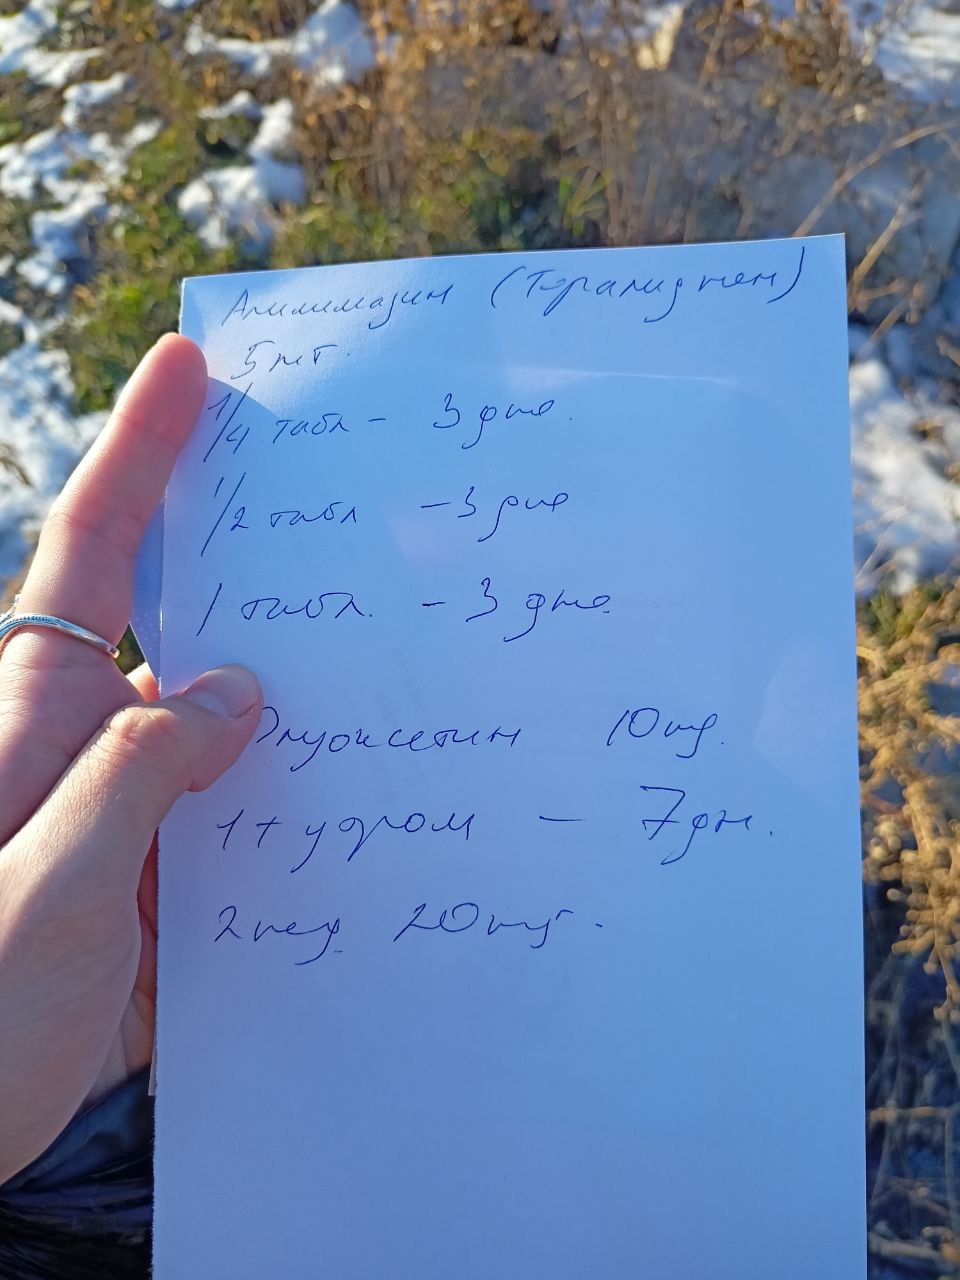 Алимемазин (Тералиджен)
5 мг.
1/4 табл - 3 дня.
1/2 табл - 3 дня
1 табл. - 3 дня.
Флуоксетин 10 mg.
1 т утром - 7 дн.
2 нед 20 mg.